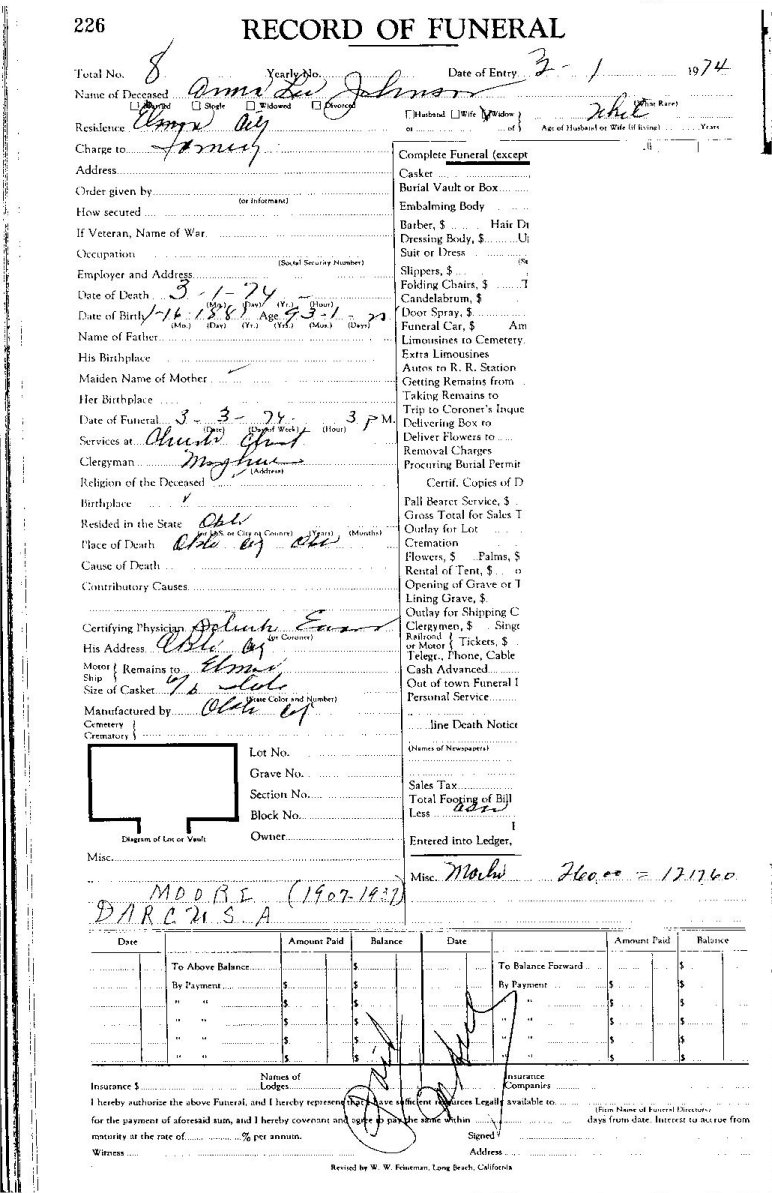 226
RECORD OF FUNERAL
Total No. 8 Yearly No. Date of Entry 3 - 1 1974
Name of Deceased Anna Lee Johnson
Married Single Widowed Divorced
Husband Wife Widow (What Race)
or of Age of Husband or Wife (if living) Years
Residence Elmer City
Charge to Family
Complete Funeral (except
Address
Casket
Order given by
(or Informant)
Burial Vault or Box
How secured
Embalming Body
If Veteran, Name of War.
Barber, $ Hair
Dressing Body, $
Occupation
(Social Security Number)
Suit or Dress
Employer and Address
Slippers, $
Date of Death 3 - 1 - 74
(Mo.) (Day) (Yr.) (Hour)
Folding Chairs, $
Candelabrum, $
Date of Birth 1-16-1881 Age 93-1-
(Mo.) (Day) (Yr.) (Yrs.) (Mos.) (Days)
Door Spray, $
Funeral Car, $ Am
Name of Father
Limousines to Cemetery
His Birthplace
Extra Limousines
Autos to R. R. Station
Maiden Name of Mother
Getting Remains from
Her Birthplace
Taking Remains to
Trip to Coroner's Inque
Date of Funeral 3 - 3 - 74 3 P M.
(Date) (Day of Week) (Hour)
Delivering Box to
Services at Church Christ
Deliver Flowers to
Clergyman
(Address)
Removal Charges
Procuring Burial Permit
Religion of the Deceased
Certif. Copies of D
Birthplace
Pall Bearer Service, $
Resided in the State
(or U.S. or City or County) (Years) (Months)
Gross Total for Sales T
Outlay for Lot
Place of Death
Cremation
Cause of Death
Flowers, $ Palms, $
Rental of Tent, $
Contributory Causes
Opening of Grave or T
Lining Grave, $
Outlay for Shipping C
Certifying Physician
(or Coroner)
Clergymen, $ Singe
His Address
Railroad or Motor Tickets, $
Telegr., Phone, Cable
Motor Ship Remains to Elmer
Cash Advanced
Size of Casket 6/6
(State Color and Number)
Out of town Funeral
Personal Service
Manufactured by
Cemetery
Crematory
line Death Notice
(Names of Newspapers)
Lot No.
Grave No.
Section No.
Sales Tax
Block No.
Total Footing of Bill
Less
Diagram of Lot or Vault
Owner
Entered into Ledger,
Misc.
Misc. 260.00 = 1217.60
MOORE (1907-1937)
DARCUS A
Date Amount Paid Balance Date Amount Paid Balance
To Above Balance $ To Balance Forward $
By Payment $ $ By Payment $ $
" " $ $ " " $ $
" " $ $ " " $ $
" " $ $ " " $ $
" " $ $ " " $ $
Paid
Insurance $ Names of Lodges Insurance Companies
I hereby authorize the above Funeral, and I hereby represent that I have sufficient resources Legally available to
(Firm Name of Funeral Directors)
for the payment of aforesaid sum, and I hereby covenant and agree to pay the same within days from date. Interest to accrue from
maturity at the rate of % per annum. Signed
Witness Address
Revised by W. W. Feineman, Long Beach, California